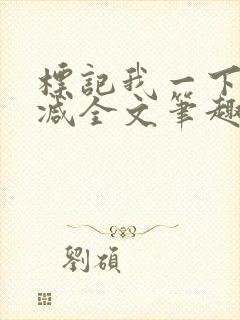 標記我一下
減全文筆趣
劉碩